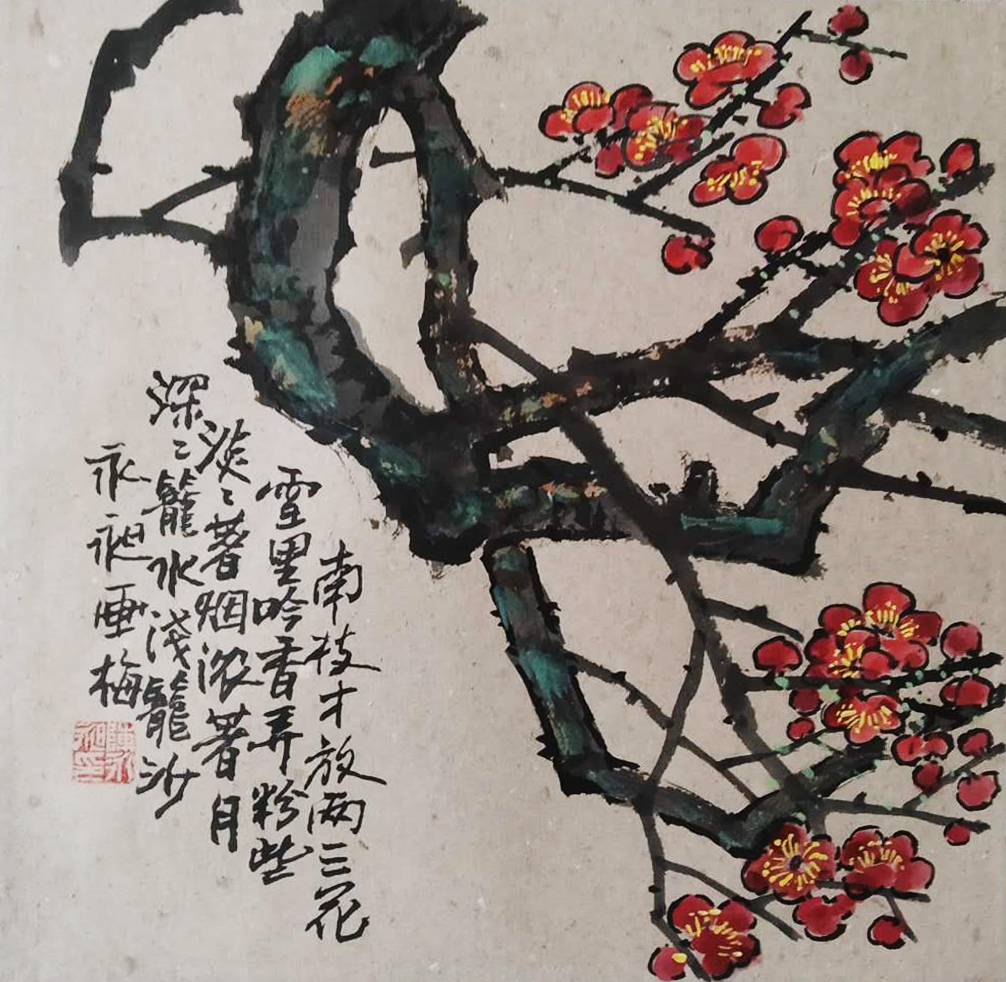 南枝才放两三花
雪里吟香弄粉些
淡〻著烟浓著月
深〻籠水浅籠沙
永昶画梅